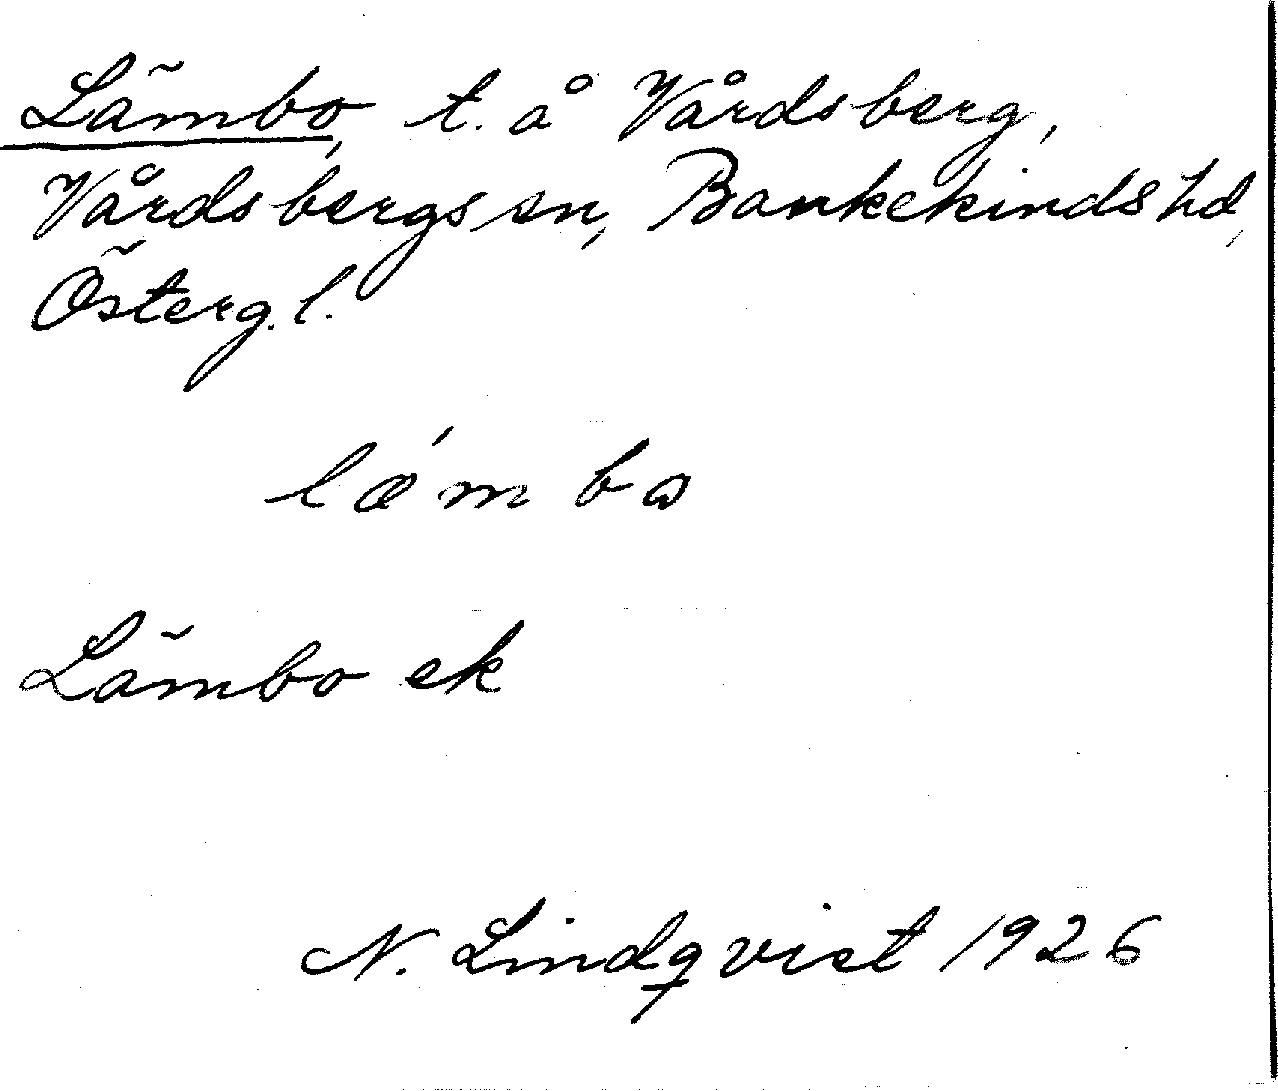 Lämbo, t. å Vårdsberg,
Vårdsbergs sn, Bankekinds hd,
Österg.l.
læ´mbω
Lämbo ek
N. Lindqvist 1926